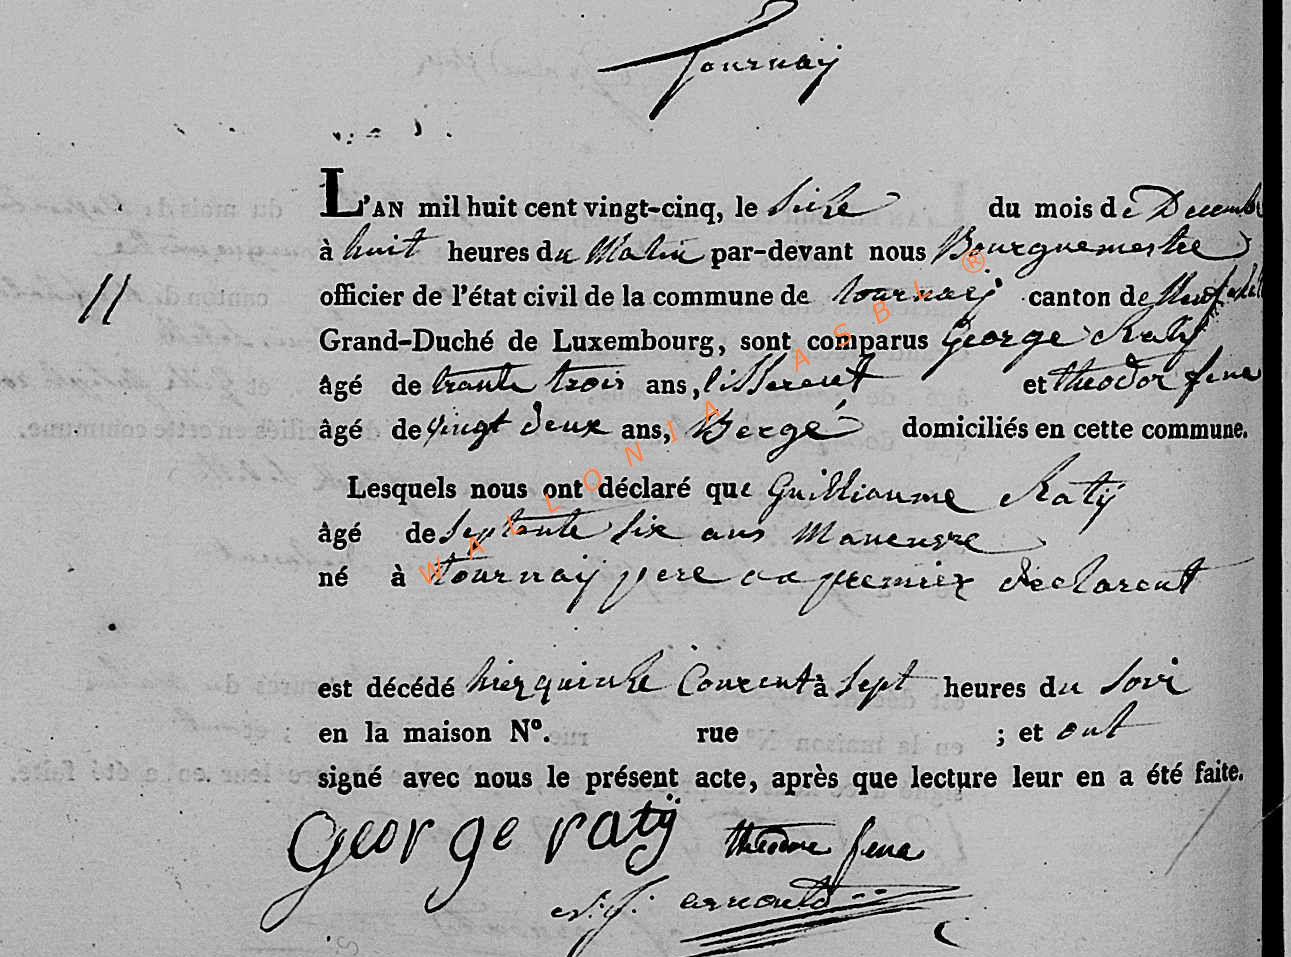 Tournaÿ
L'AN mil huit cent vingt-cinq, le Seize du mois de Decembre
à huit heures du Matin par-devant nous Bourguemestre
11 officier de l'état civil de la commune de tournaÿ canton de
Grand-Duché de Luxembourg, sont comparus George Ratÿ
âgé de trante trois ans, tisserent et theodor fena
âgé de vingt deux ans, Bergé domiciliés en cette commune.
Lesquels nous ont déclaré que Guilliaume Ratÿ
âgé de septante six ans Maneuvre
né à tournaÿ pere au premier declarent
est décédé hier quinze Courent à sept heures du soir
en la maison N°. rue ; et ont
signé avec nous le présent acte, après que lecture leur en a été faite.
George ratÿ theodore fena
arnould
WALLONIA ASBL ®